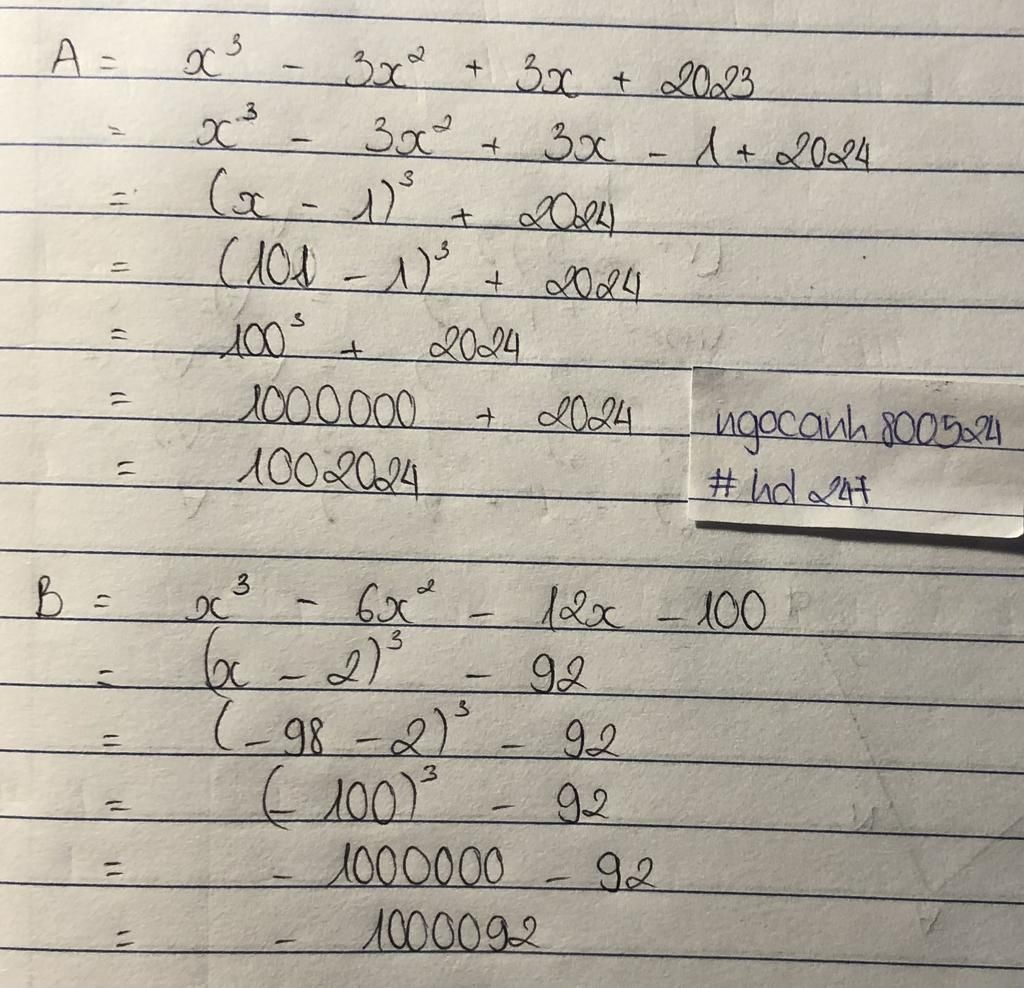 A = x³ - 3x² + 3x + 2023
= x³ - 3x² + 3x - 1 + 2024
= (x - 1)³ + 2024
= (101 - 1)³ + 2024
= 100³ + 2024
= 1000000 + 2024
= 1002024
ngocanh 800524
# hd 247
B = x³ - 6x² - 12x - 100
= (x - 2)³ - 92
= (-98 - 2)³ - 92
= (- 100)³ - 92
= - 1000000 - 92
= - 1000092